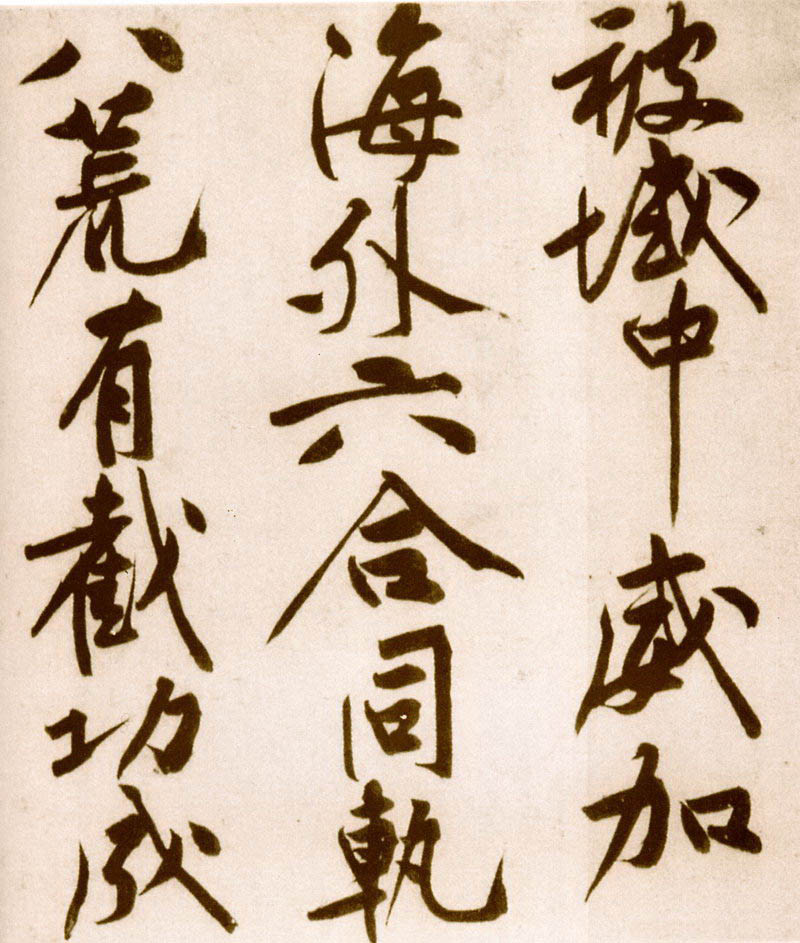 被域中威加
海外六合同軌
八荒有截功成